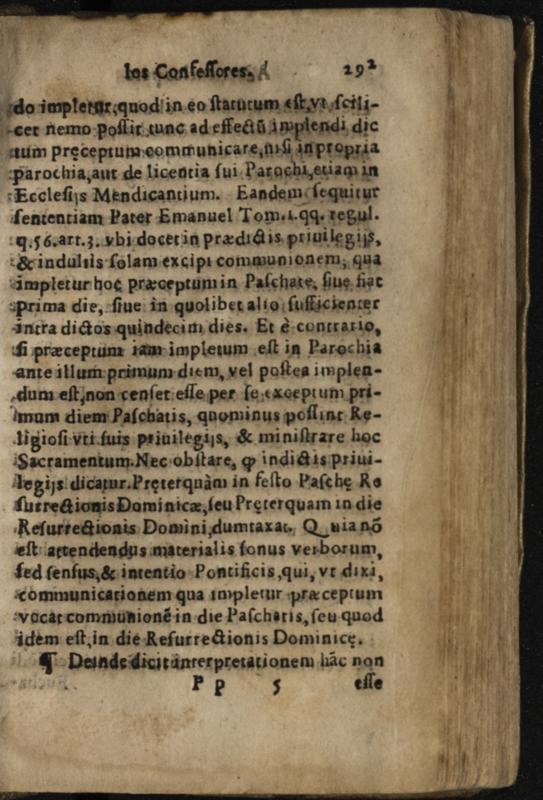 los Confeſſores. 292
do impletur, quod in eo ſtatutum eſt, vt ſcili-
cet nemo poſſit tunc ad effectũ implendi dic
tum pręceptum communicare, niſi in propria
parochia, aut de licentia ſui Parochi, etiam in
Eccleſijs Mendicantium. Eandem ſequitur
ſententiam Pater Emanuel Tom. 1. qq. regul.
q. 56. art. 3. vbi docet in prædictis priuilegijs,
& indultis ſolam excipi communionem, qua
impletur hoc præceptum in Paſchate, ſiue fiat
prima die, ſiue in quolibet alio ſufficienter
intra dictos quindecim dies. Et è contrario,
ſi præceptum iam impletum eſt in Parochia
ante illum primum diem, vel poſtea implen-
dum eſt, non cenſet eſſe per ſe exceptum pri-
mum diem Paſchatis, quominus poſſint Re-
ligioſi vti ſuis priuilegijs, & miniſtrare hoc
Sacramentum. Nec obſtare, ꝙ in dictis priui-
legijs dicatur. Pręterquàm in feſto Paſchę Re
ſurrectionis Dominicæ, ſeu Pręterquam in die
Reſurrectionis Domini, dumtaxat. Quia nõ
eſt attendendus materialis ſonus verborum,
ſed ſenſus, & intentio Pontificis, qui, vt dixi,
communicationem qua impletur præceptum
vocat communionẽ in die Paſchatis, ſeu quod
idem eſt, in die Reſurrectionis Dominicę.
¶ Deinde dicit interpretationem hãc non
P p 5 eſſe